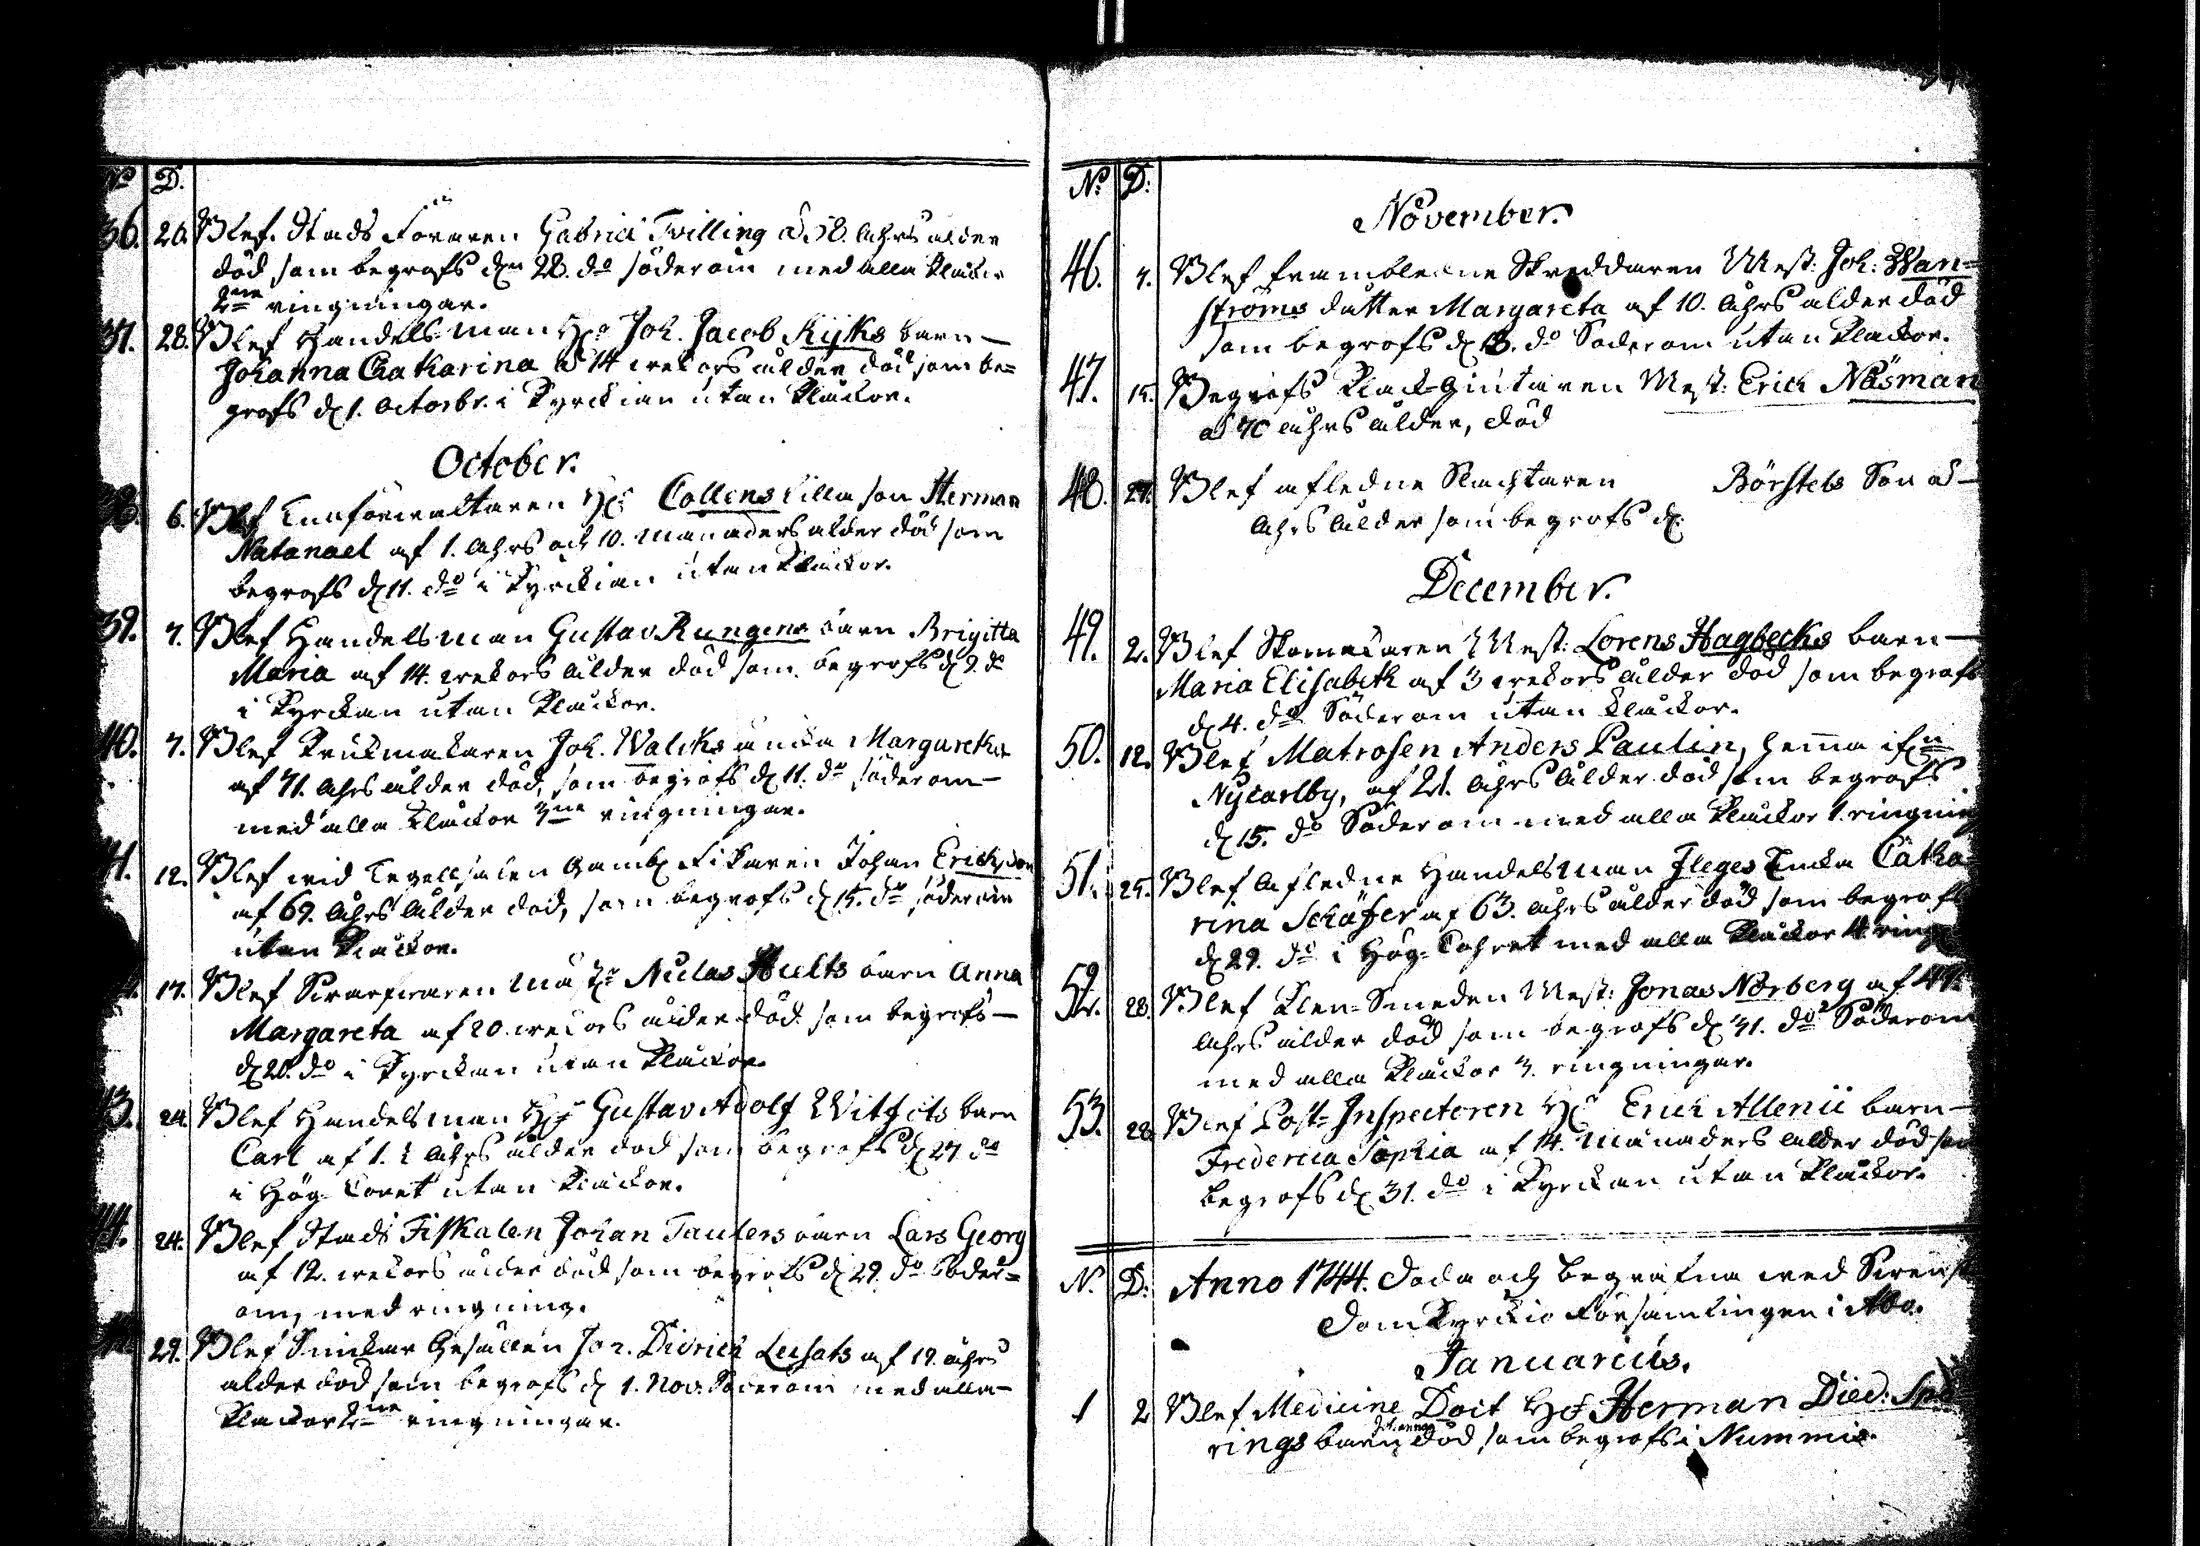 No D.
36. 26. Blef Stads Föraren Gabriel Tvilling à 58. åhrs ålder
död som begrofs dn 28. do söder om med alla klåckor
2ne ringningar.
37. 28. Blef Handelsman Hr Joh. Jacob Kijks barn
Johanna Catharina à 14 wekors ålder död som be=
grofs d 1. Octobr. i Kyrckian utan klåckor.
October.
38. 6. Blef Hr Collens lilla son Herman
Natanael af 1. åhrs och 10. månaders ålder död som
begrofs d 11. do i Kyrckian utan Klåckor.
39. 7. Blef Handelsman Gustav Rungens barn Brigitta
Maria af 14. wekors ålder död som begrofs d 9. do
i Kyrckan utan klåckor.
40. 7. Blef Krukmakaren Joh. Walcks änka Margaretha
af 71. åhrs ålder död, som begrofs d 11. do söder om
med alla klåckor 3ne ringningar.
41. 12. Blef wid Tegelsalen Gamb Fiskaren Johan Erichsson
af 69. åhrs ålder död, som begrofs d 15. do söder om
utan klåckor.
17. Blef Swarfwaren Niclas Hults barn Anna
Margareta af 20. wekors ålder död som begrofs
d 20. do i Kyrckan utan klåckor.
43. 24. Blef Handelsman Hr Gustav Adolf Witfots barn
Carl af 1. åhrs ålder död som begrofs d 27 do
i Hög Coret utan klåckor.
44. 24. Blef Stads Fiskalen Johan Taulers barn Lars Georg
af 12. wekors ålder död som begrofs d 29. do Söder=
om, med ringning.
29. Blef Snickar Gesällen Joh. Didrich Lusats af 19. åhrs
ålder död som begrofs d 1. Nov. Söder om med alla
klåckor 2ne ringningar.
No D.
November.
46. 7. Blef framledne Skreddaren Mest: Joh: Wan=
ströms dotter Margareta af 10. åhrs ålder död
som begrofs d 13. do Söder om utan klåckor.
47. 15. Begrofs Klåck-Giutaren Mest: Erich Näsman
à 70 åhrs ålder, död
48. 27. Blef afledne Slachtaren Börstels Son à
åhrs ålder som begrofs d.
December.
49. 2. Blef Skomakaren Mest: Lorens Hagbecks barn
Maria Elisabeth af 3 wekors ålder död som begrofs
d 4. do Söder om utan klåckor.
50. 12. Blef Matrosen Anders Paulin, hemma ifrn
Nycarlby, af 21. åhrs ålder död som begrofs
d 15. do Söder om med alla klåckor 1. ringning
51. 25. Blef afledne Handelsman Fleges Encka Catha=
rina Schäfer af 63. åhrs ålder död som begrofs
d 29. do i Hög-Cohret med alla klåckor 4. ring
52. 28. Blef Klen-Smeden Mest: Jonas Norberg af 47.
åhrs ålder död som begrofs d 31. do Söder om
med alla klåckor 3. ringningar.
53. 28. Blef Post-Inspectoren Hr Erich Allenii barn
Frederica Sophia af 14. månaders ålder död som
begrofs d 31. do i Kyrckan utan klåckor.
N. D: Anno 1744. döda och begrafna wed Swenska
Domkyrckio Församlingen i Åbo.
Januarius.
1 2 Blef Medicine Doct Hr Herman Died: Spö
rings barn Johannes död som begrofs i Nummis.